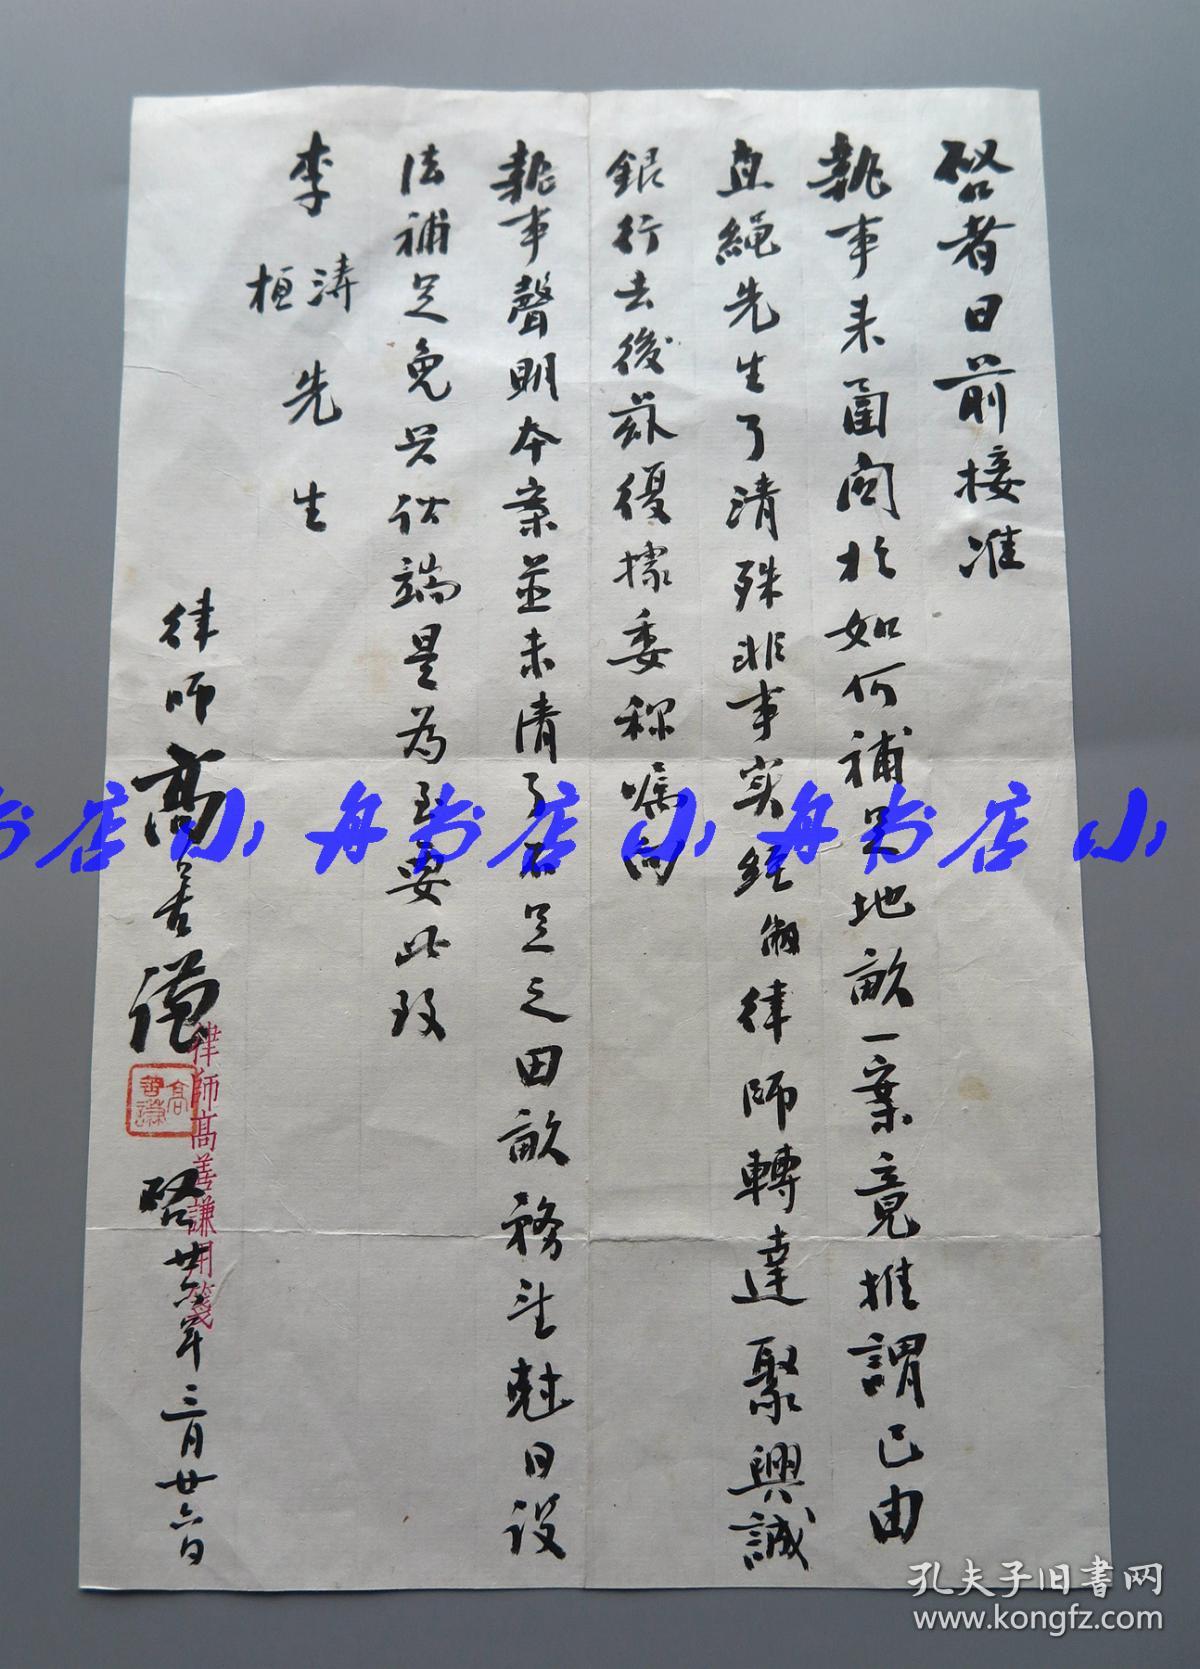 啓者日前接准
執事来函関於如何補足地畝一案竟推謂已由
直繩先生了清殊非事实經敝律師轉達聚興誠
銀行去後茲復據委称嘱向
執事聲明本案並未清了不足之田畝務望尅日设
法補足免兴訟端是為至要此致
李涛
桓
先生
律師高善謙
啓卅六年三月廿六日
高善謙
律師高善謙用箋
小舟书店
孔夫子旧書网
www.kongfz.com